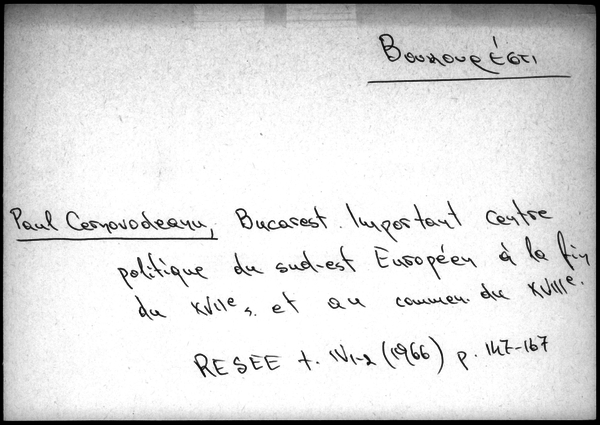 Βουκουρέστι
Paul Cernovodeanu, Bucarest. Important centre
politique du sud-est Européen à la fin
du XVIIe s. et au commen. du XVIIIe.
RESEE t. IV1-2 (1966) p. 147-167